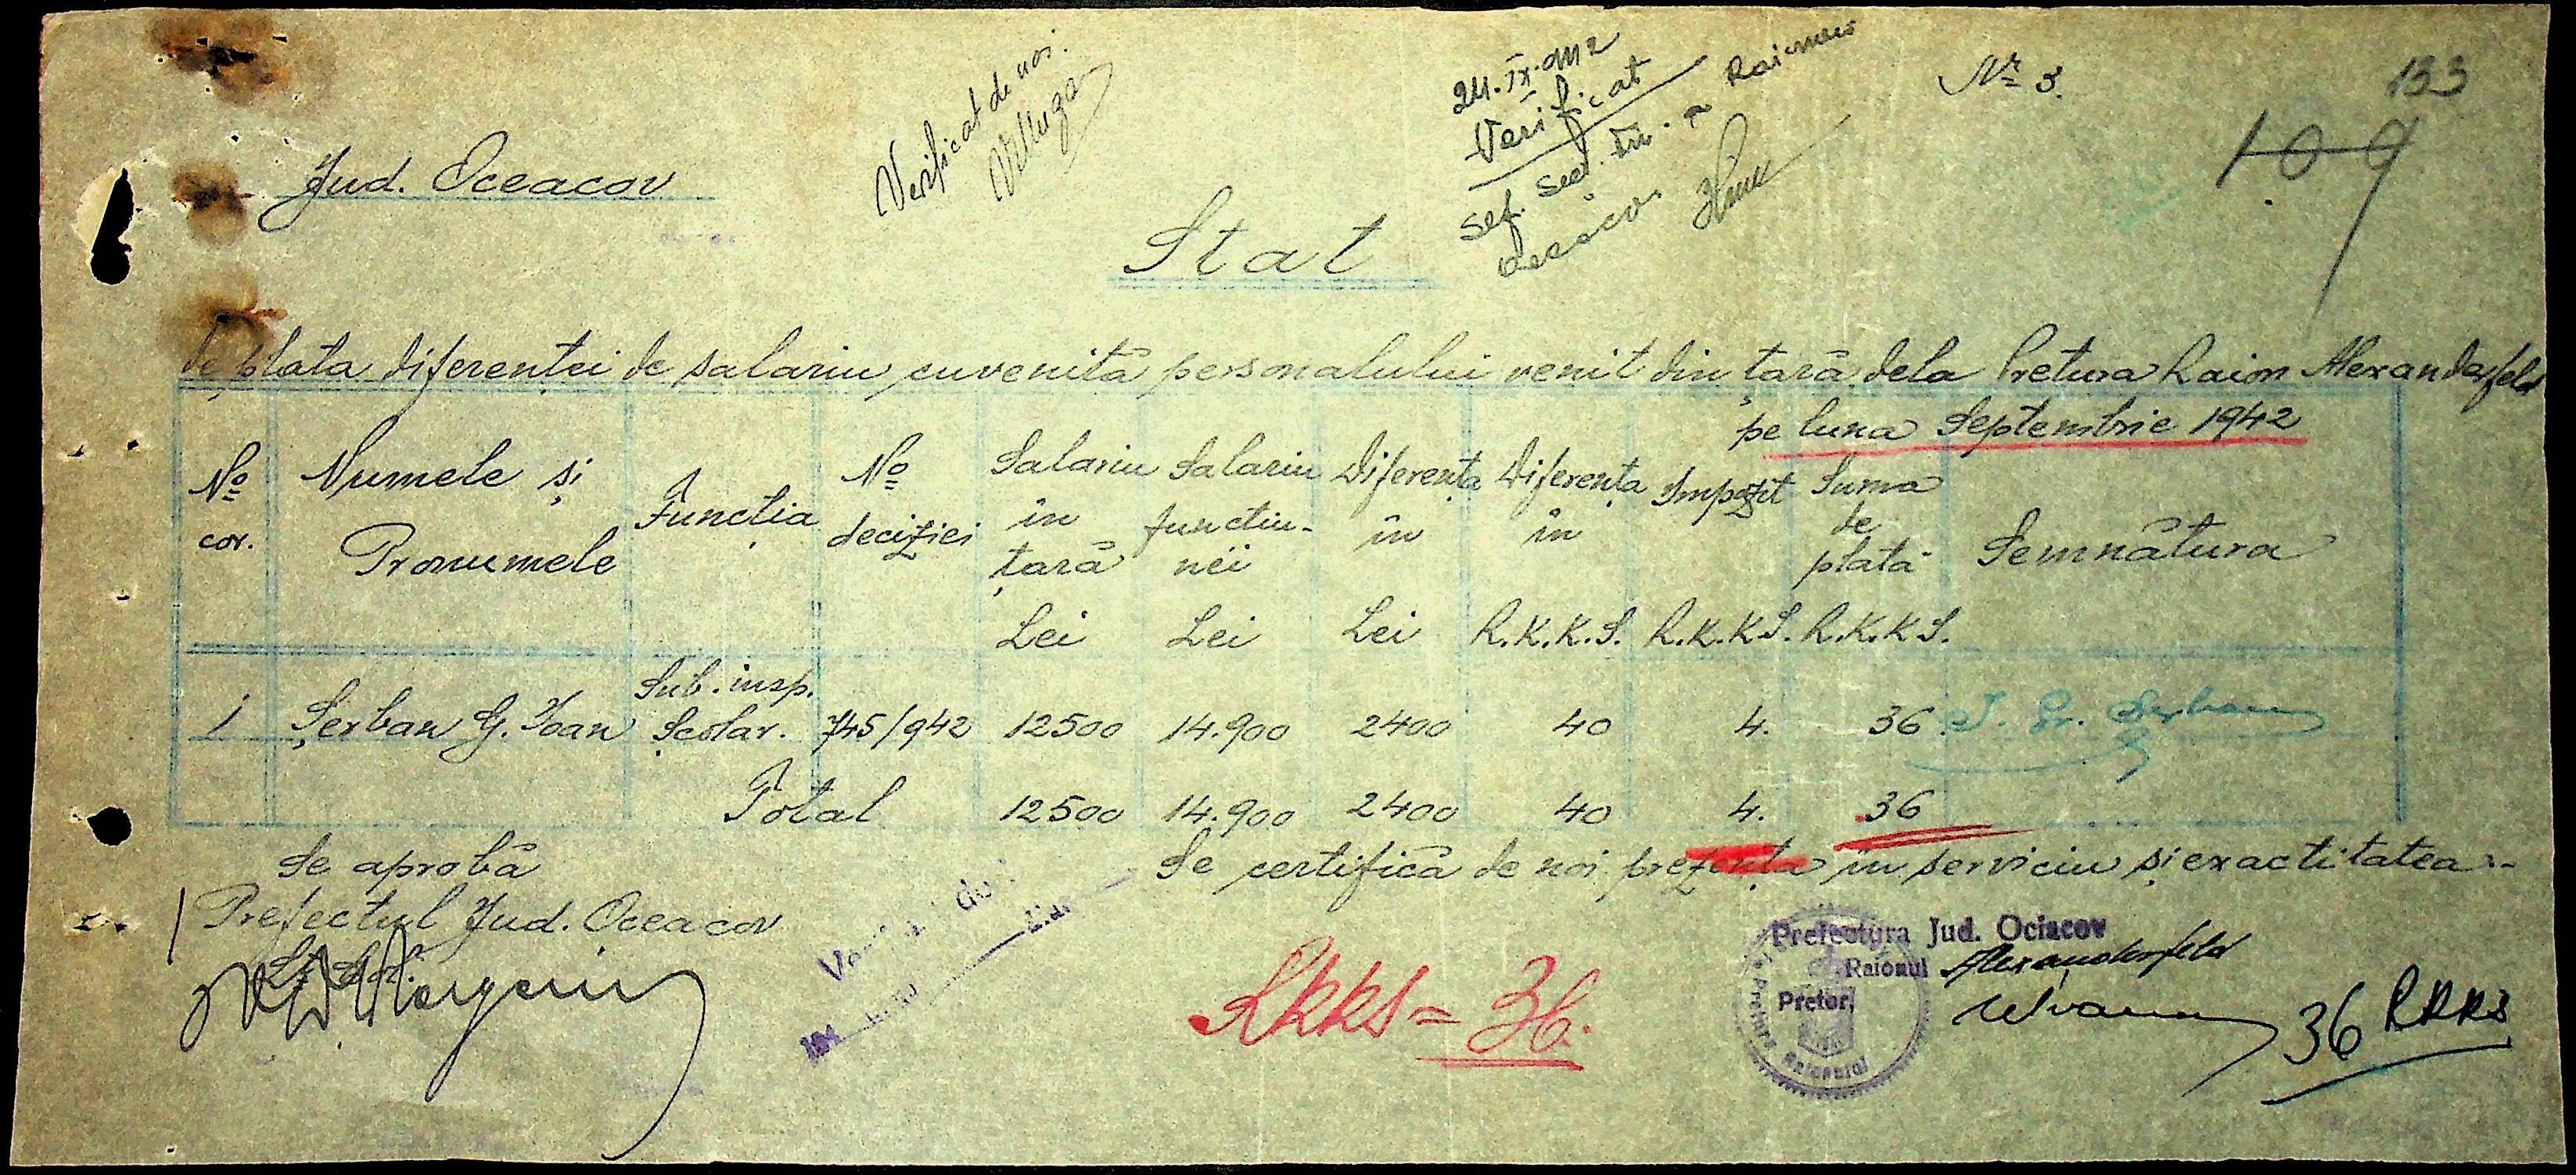 133
Nr 3.
109
Verificat de noi.
24.IX.942
Verificat
Jud. Oceacov
Stat
de plata diferenței de salariu cuvenită personalului venit din țară dela Pretura Raion Alexanderfeld
pe luna Septembrie 1942
No cor. Numele și Pronumele Funcția No deciziei Salariu în țară Lei Salariu functiu-nei Lei Diferența în Lei Diferența în R.K.K.S. Impozit R.K.K.S. Suma de plată R.K.K.S. Semnătura
1 Șerban G. Ioan Sub. insp. Școlar. 745/942 12500 14.900 2400 40 4. 36 I. Gr. Șerban
Total 12500 14.900 2400 40 4. 36
Se aprobă
Se certifică de noi prezența în serviciu și exactitatea
Prefectul Jud. Oceacov
Prefectura Jud. Ociacov
Raionul Alexanderfeld
Pretor,
RKKS = 36.
36 RKKS